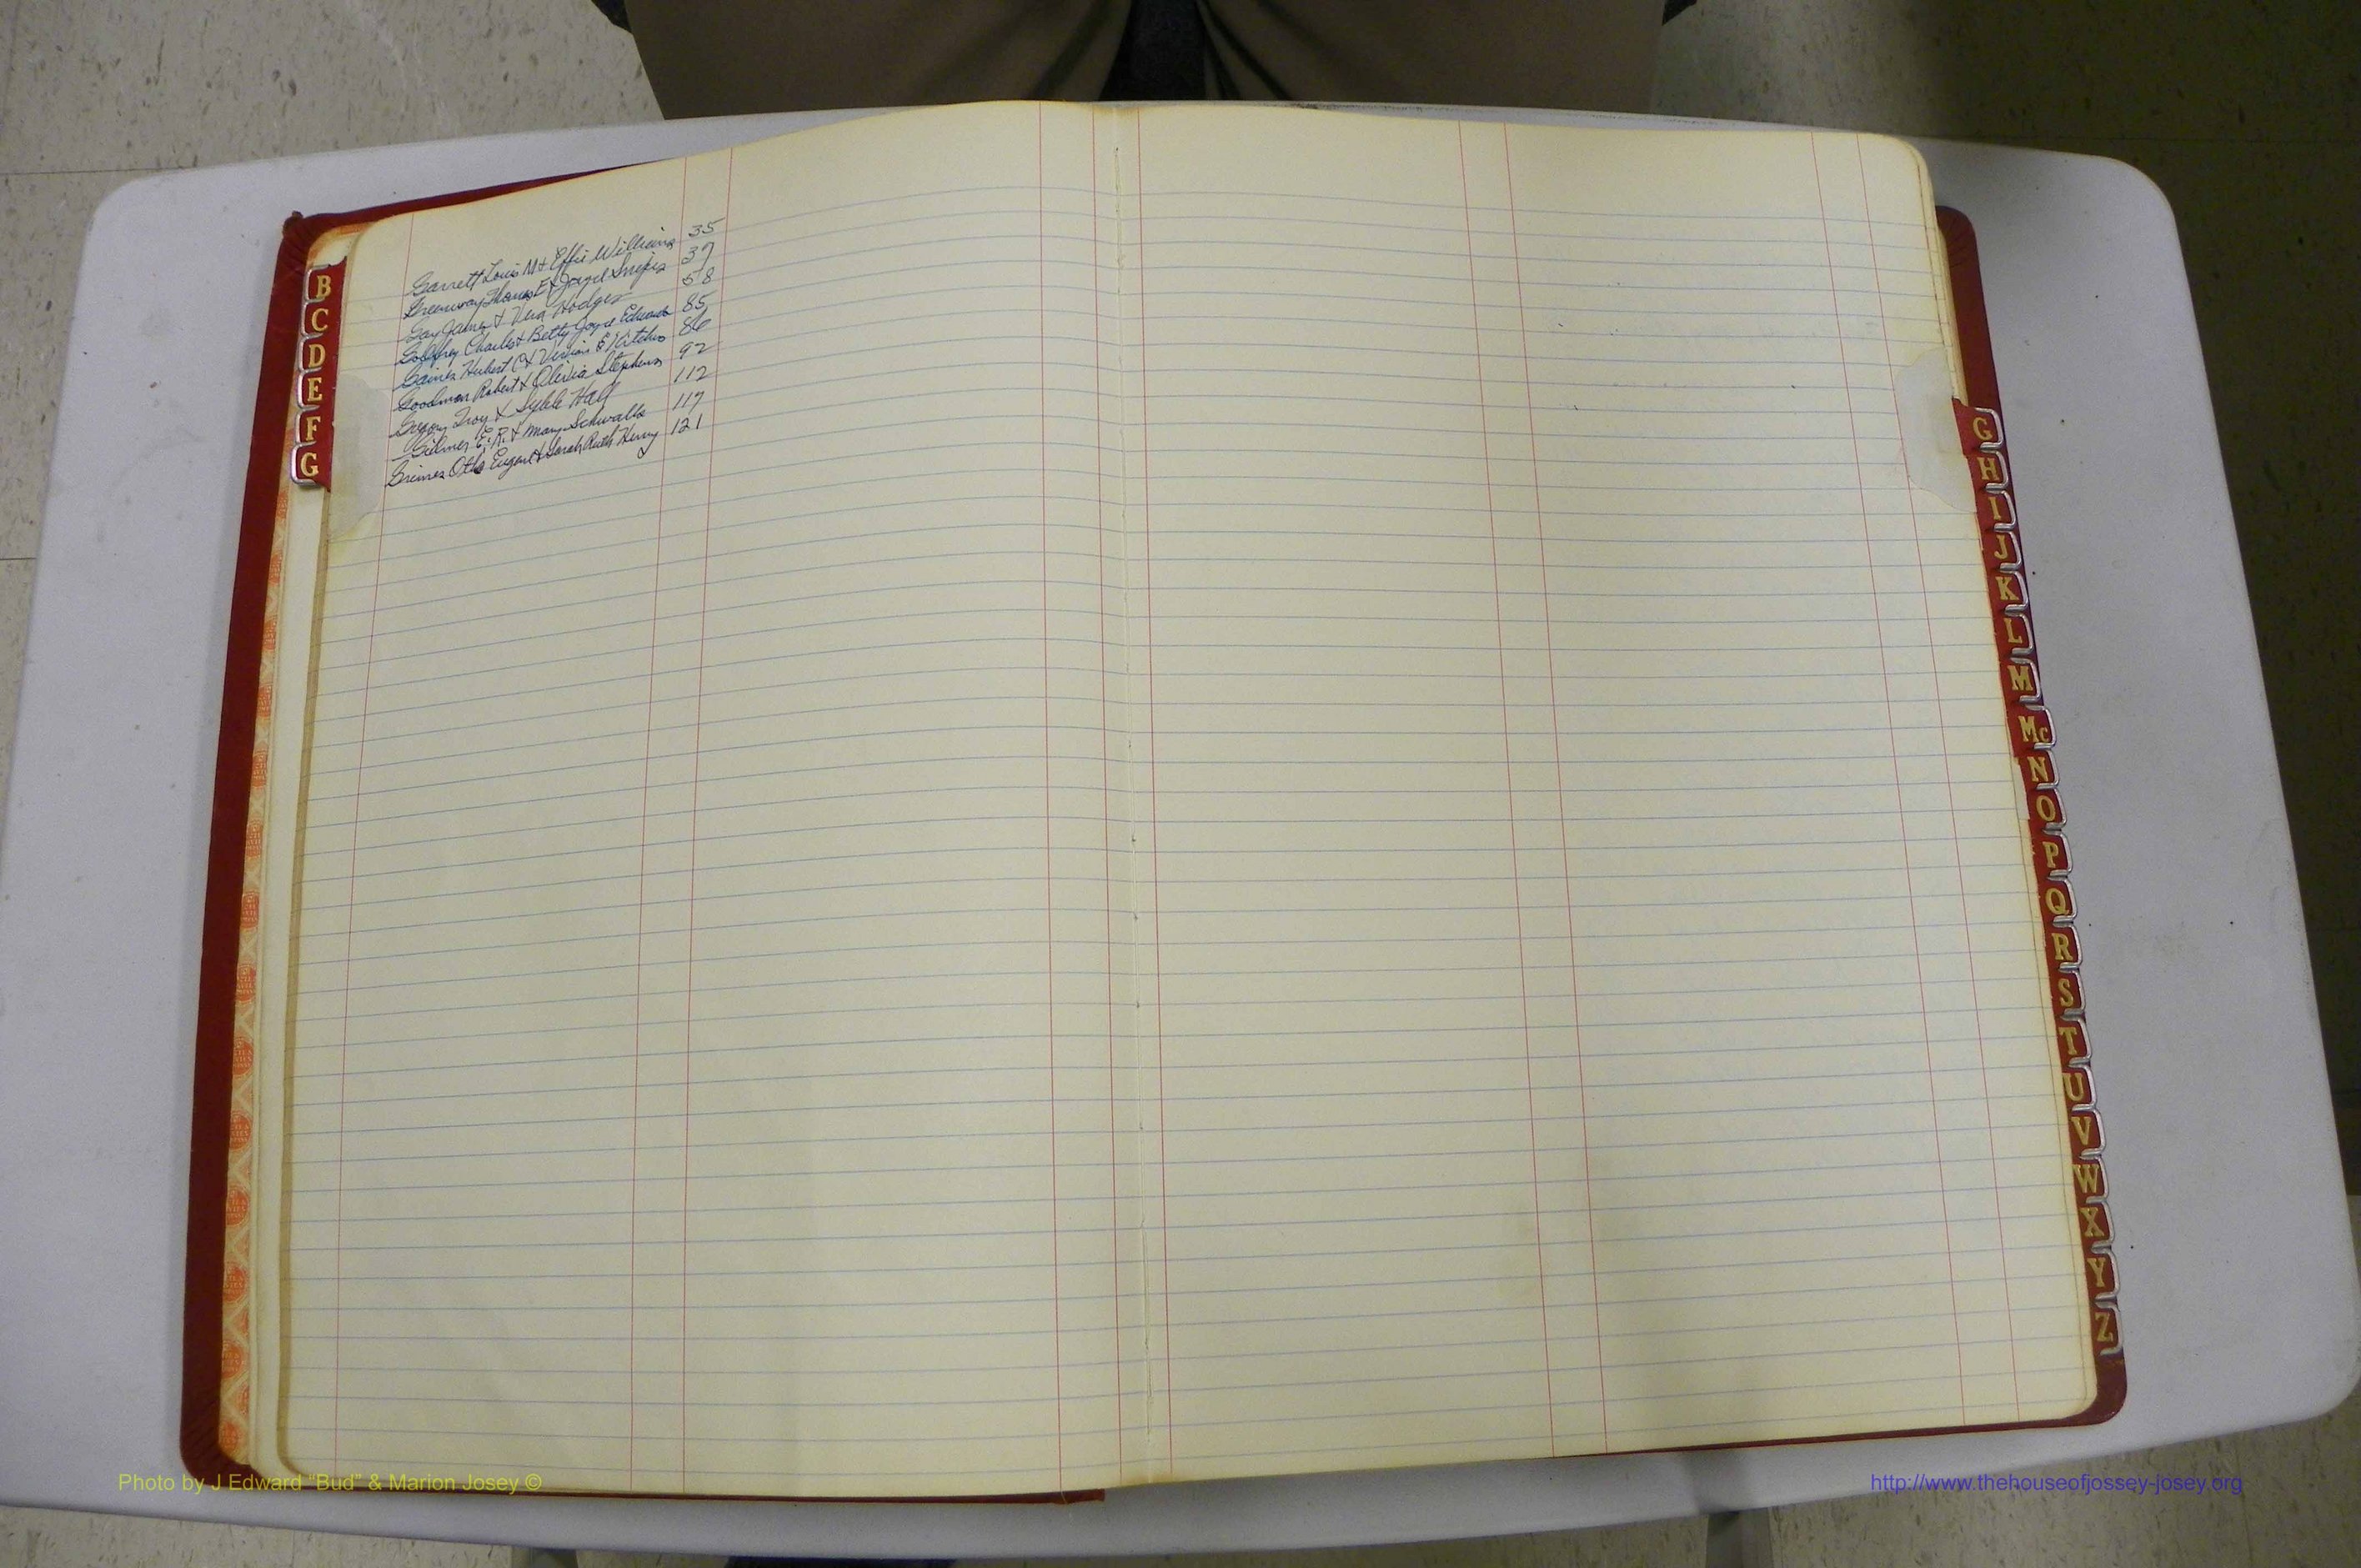 Garrett Louis M & Effie Williams 35
Greenway Thomas E & Joyce Snipes 37
Gay James & Vera Hodges 58
Godfrey Charles & Betty Joyce Edwards 85
Gaines Hubert C & Vivian E 86
Goodman Robert & Olivia Stephens 92
Gregory Troy & Sybile Hall 112
Gilmer E. R. & Mary Schwalls 117
Grimes Otho Eugene & Sarah Ruth Henry 121
B
C
D
E
F
G
G
H
I
J
K
L
M
Mc
N
O
P
Q
R
S
T
U
V
W
X
Y
Z
Photo by J Edward "Bud" & Marion Josey ©
http://www.thehouseofjossey-josey.org